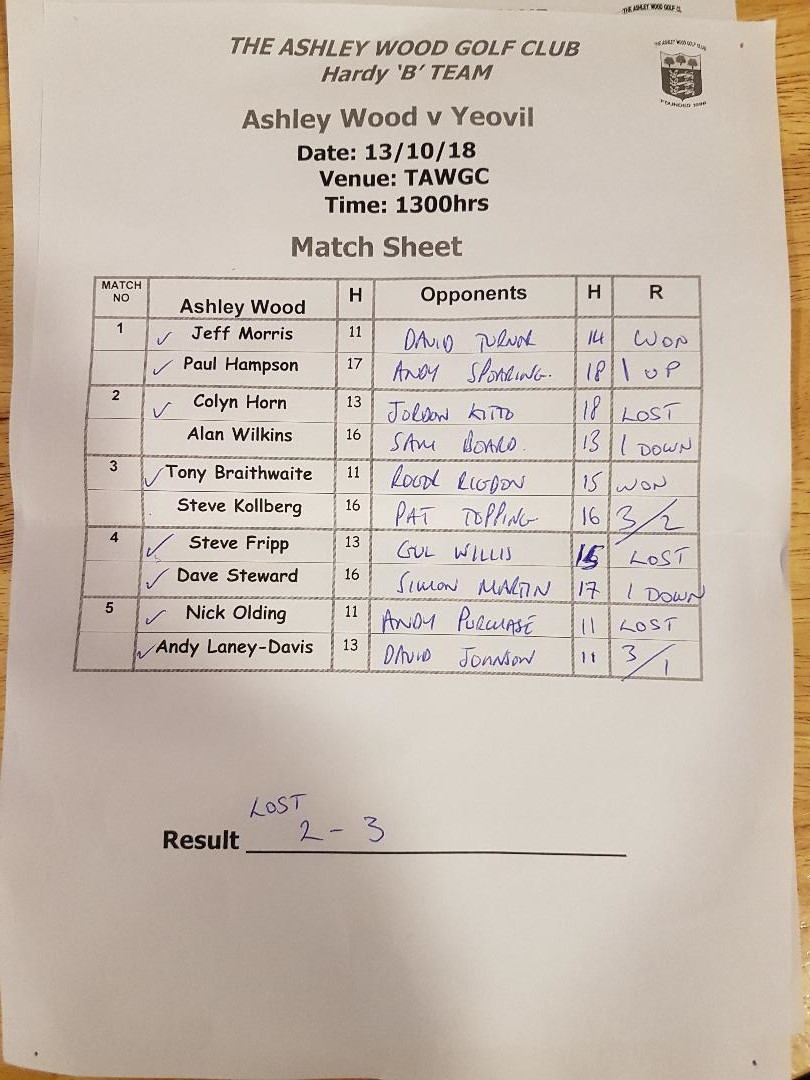 THE ASHLEY WOOD GOLF CLUB
Hardy 'B' TEAM
Ashley Wood v Yeovil
Date: 13/10/18
Venue: TAWGC
Time: 1300hrs
Match Sheet
MATCH NO Ashley Wood H Opponents H R
1 Jeff Morris 11 DAVID TURNOR 14 WON
Paul Hampson 17 ANDY SPOARING. 18 1 UP
2 Colyn Horn 13 JORDON KITTO 18 LOST
Alan Wilkins 16 SAM BOARD. 13 1 DOWN
3 Tony Braithwaite 11 15 WON
Steve Kollberg 16 PAT TOPPING 16 3/2
4 Steve Fripp 13 WILLIS LOST
Dave Steward 16 SIMON MARTIN 17 1 DOWN
5 Nick Olding 11 ANDY PURCHASE 11 LOST
Andy Laney-Davis 13 DAVID JOHNSON 11 3/1
LOST
Result 2 - 3